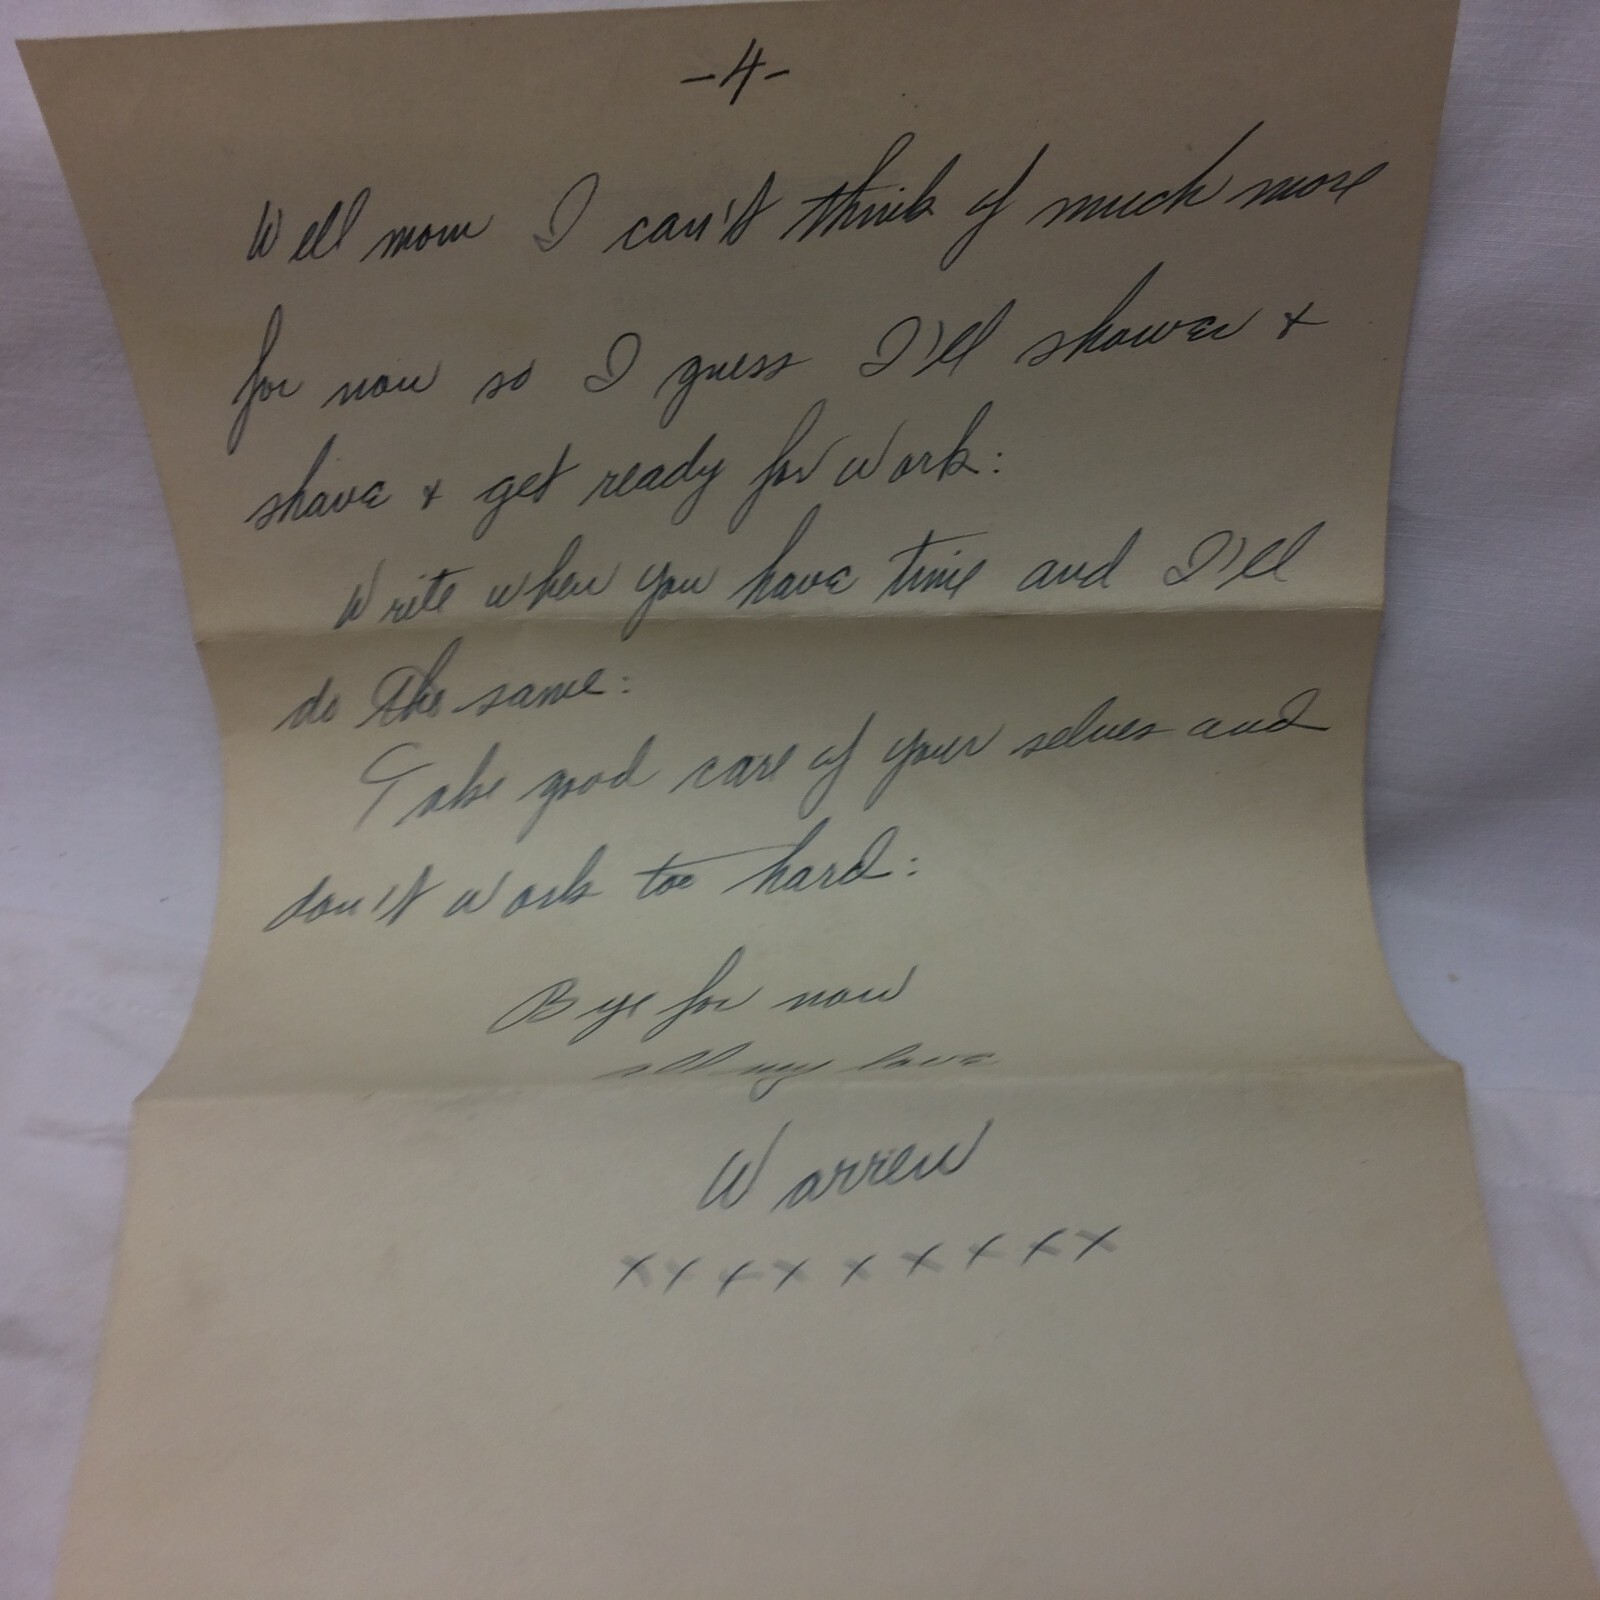 -4-
Well mom I can't think of much more
for now so I guess I'll shower +
shave + get ready for work:
Write when you have time and I'll
do the same:
Take good care of your selves and
don't work too hard:
Bye for now
all my love
Warren
xxxxxxxxx